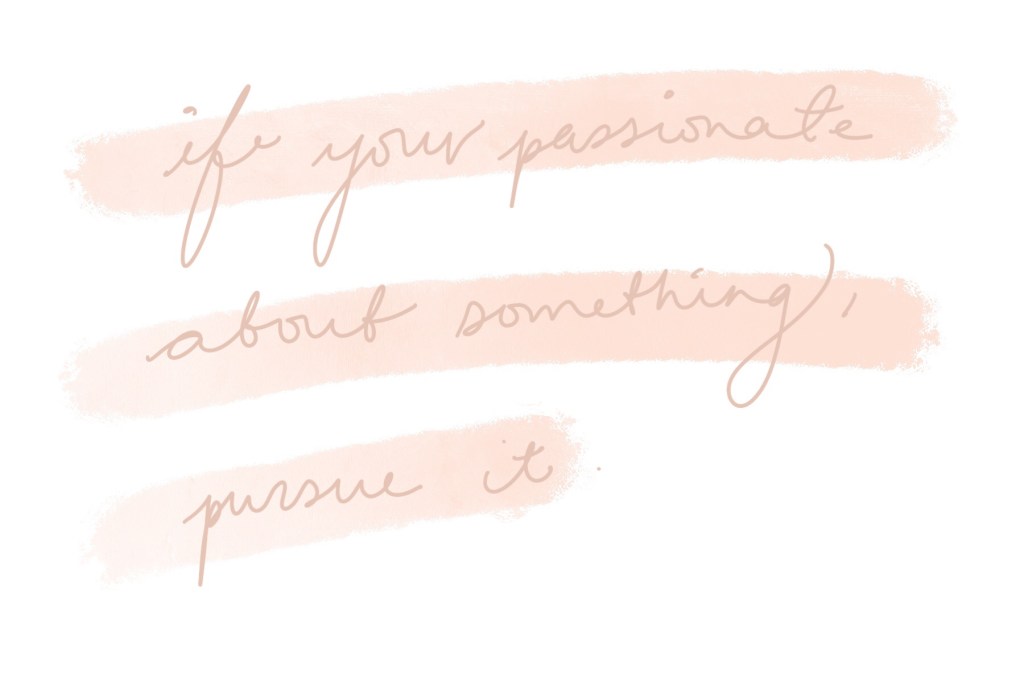 if your passionate
about something,
pursue it.